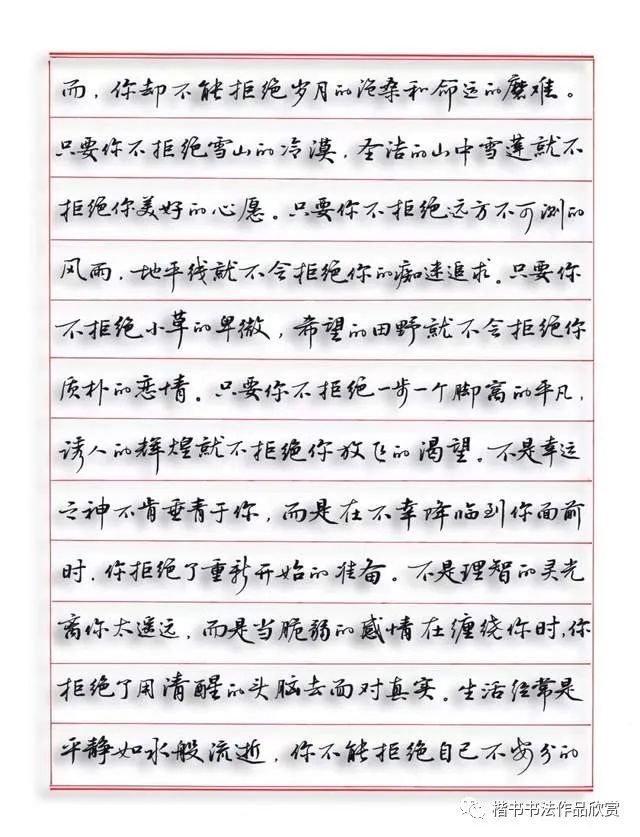 而，你却不能拒绝岁月的沧桑和命运的磨难。
只要你不拒绝雪山的冷漠，圣洁的山中雪莲就不
拒绝你美好的心愿。只要你不拒绝远方不可测的
风雨，地平线就不会拒绝你的痴迷追求。只要你
不拒绝小草的卑微，希望的田野就不会拒绝你
质朴的恋情。只要你不拒绝一步一个脚窝的平凡，
诱人的辉煌就不拒绝你放飞的渴望。不是幸运
之神不肯垂青于你，而是在不幸降临到你面前
时，你拒绝了重新开始的准备。不是理智的灵光
离你太遥远，而是当脆弱的感情在缠绕你时，你
拒绝了用清醒的头脑去面对真实。生活经常是
平静如水般流逝，你不能拒绝自己不安分的
楷书书法作品欣赏